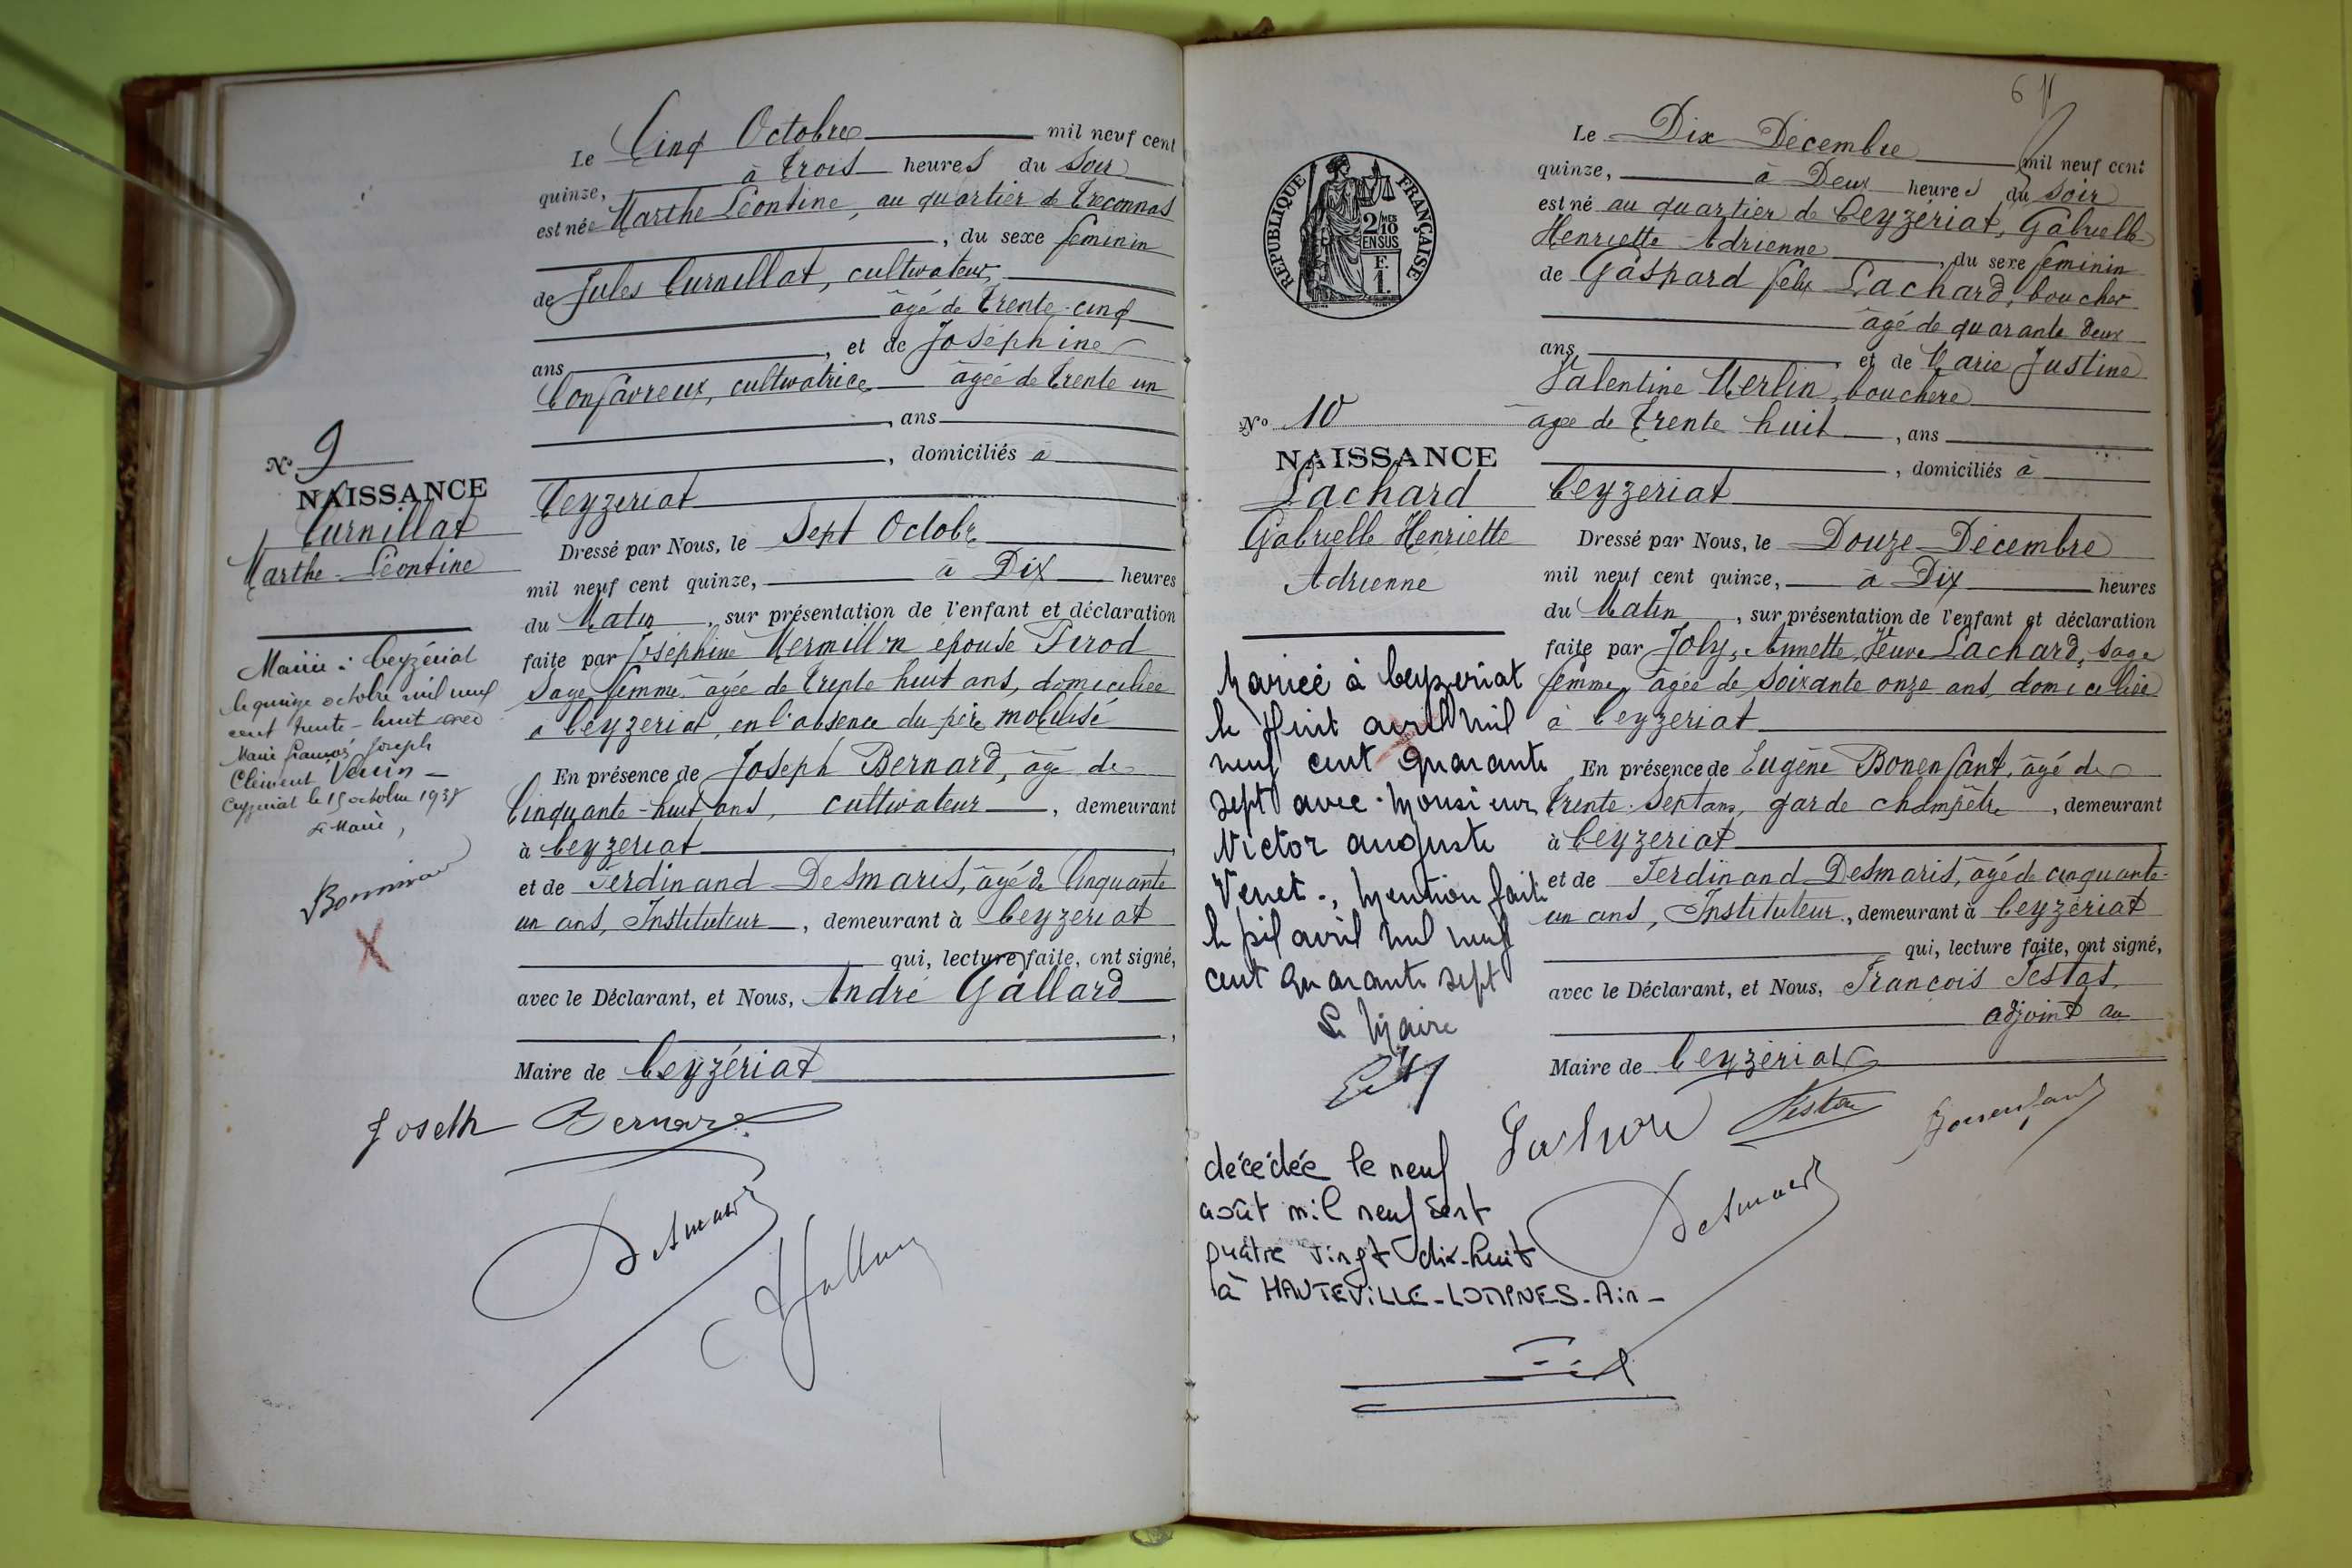 Le Cinq Octobre mil neuf cent
quinze, à trois heures du Soir
est née Marthe Léontine, au quartier de Treconnas
, du sexe féminin
de Jules Curnillat, cultivateur,
âgé de trente-cinq
ans, et de Joséphine
Confavreux, cultivatrice âgée de trente un
, ans
, domiciliés à
Ceyzeriat
Dressé par Nous, le Sept Octobre
mil neuf cent quinze, à Dix heures
du Matin, sur présentation de l'enfant et déclaration
faite par Joséphine Mermillon épouse Perod
Sage femme, âgée de trente huit ans, domiciliée
à Ceyzeriat, en l'absence du père mobilisé
En présence de Joseph Bernard, âgé de
Cinquante-huit ans, cultivateur, demeurant
à Ceyzeriat
et de Ferdinand Desmaris, âgé de Cinquante
un ans, Instituteur, demeurant à Ceyzeriat
qui, lecture faite, ont signé,
avec le Déclarant, et Nous, André Gallard
,
Maire de Ceyzériat
Joseth Bernard
Desmaris
Gallard
N° 9
NAISSANCE
Curnillat
Marthe-Léontine
Mariée à Ceyzériat
le quinze octobre mil neuf
cent trente-huit avec
Marie François Joseph
Clément
Ceyzeriat le 15 octobre 1938
Le Maire,
X
6
REPUBLIQUE FRANÇAISE
2/10 MES
EN SUS
F.
1.
Le Dix Décembre mil neuf cent
quinze, à Deux heures du Soir
est né au quartier de Ceyzériat, Gabrielle
Henriette Adrienne, du sexe féminin
de Gaspard Félix Lachard, boucher
âgé de quarante deux
ans et de Marie Justine
Valentine Merlin, bouchère
âgée de trente huit, ans
, domiciliés à
Ceyzeriat
Dressé par Nous, le Douze Décembre
mil neuf cent quinze, à Dix heures
du Matin, sur présentation de l'enfant et déclaration
faite par Joly, Annette, Veuve Lachard, sage
femme, âgée de soixante onze ans, domiciliée
à Ceyzeriat
En présence de Eugène Bonenfant, âgé de
trente-sept ans, garde champêtre, demeurant
à Ceyzeriat
et de Ferdinand Desmaris, âgé de cinquante-
un ans, Instituteur, demeurant à Ceyzériat
qui, lecture faite, ont signé,
avec le Déclarant, et Nous, François Testas,
adjoint au
Maire de Ceyzériat
Lachard
Testas
Bonenfant
Desmaris
N° 10
NAISSANCE
Lachard
Gabrielle Henriette
Adrienne
Mariée à Ceyzeriat
le Huit avril mil
neuf cent quarante
sept avec Monsieur
Victor auguste
Venet., Mention faite
le avril mil neuf
cent quarante sept
Le Maire
décédée le neuf
août mil neuf cent
quatre vingt dix-huit
à HAUTEVILLE-LOMPNES-Ain-